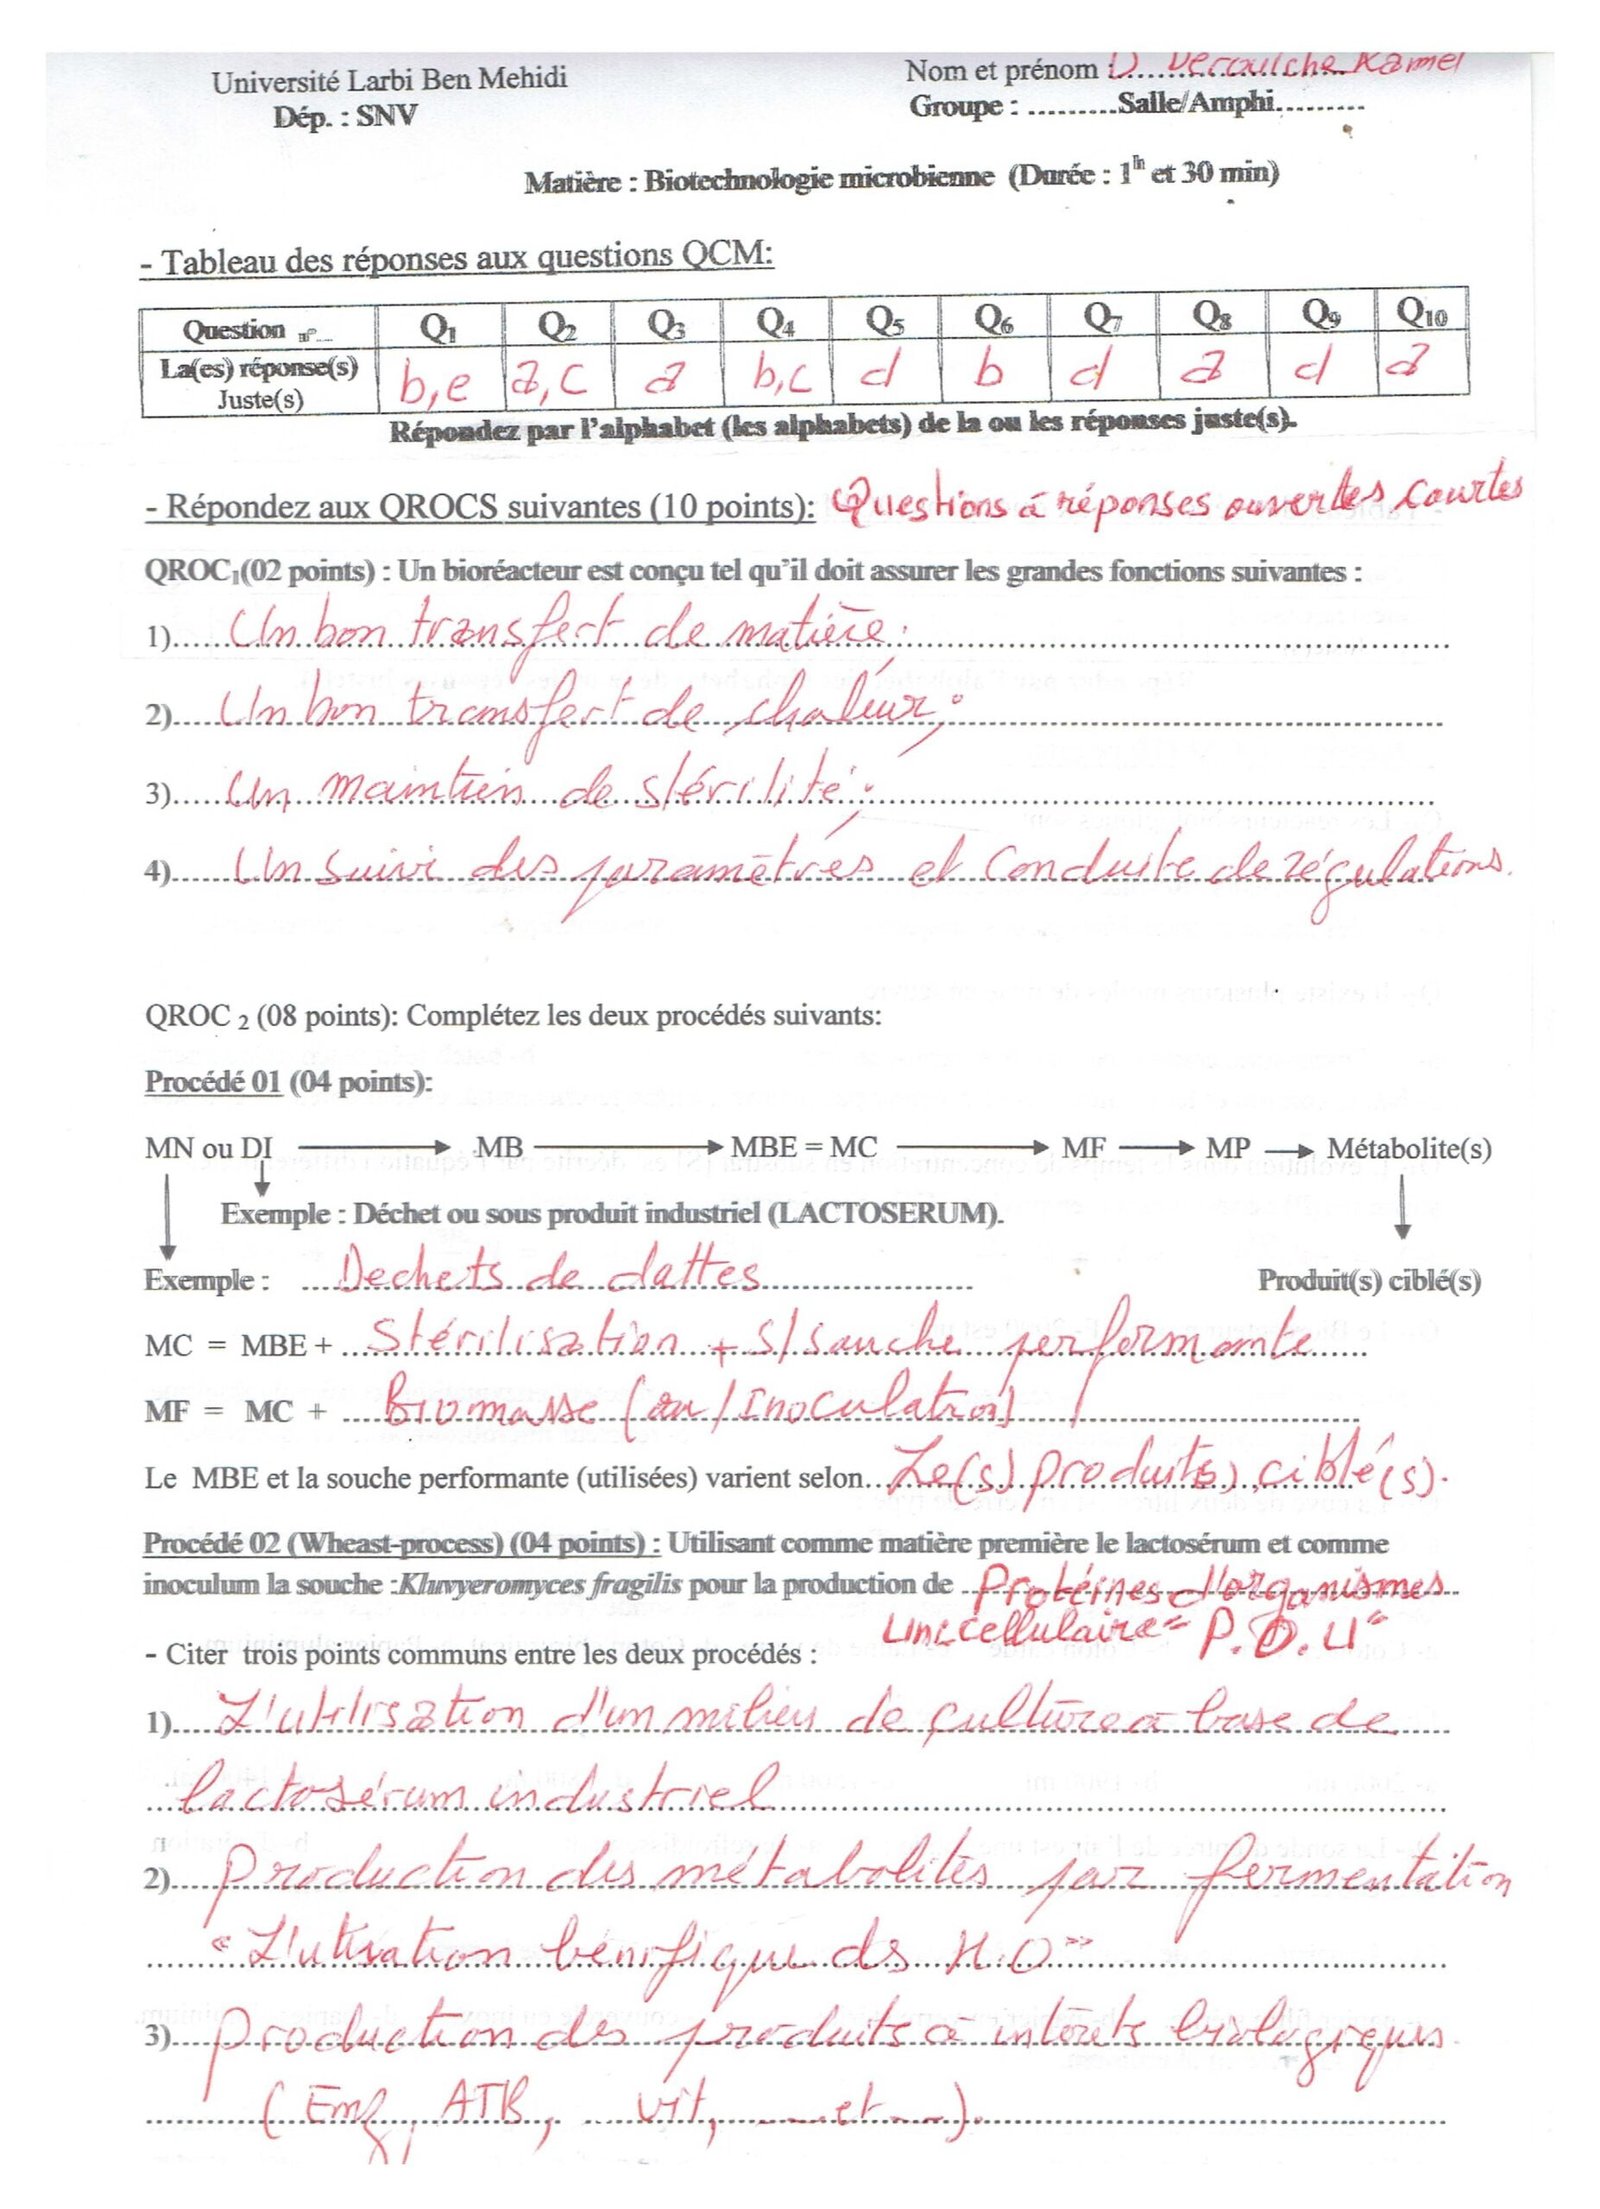 Université Larbi Ben Mehidi
Dép. : SNV
Nom et prénom : D. Derouiche Kamel
Groupe : .........Salle/Amphi.........
Matière : Biotechnologie microbienne (Durée : 1h et 30 min)
- Tableau des réponses aux questions QCM:
Question n°... Q1 Q2 Q3 Q4 Q5 Q6 Q7 Q8 Q9 Q10
La(es) réponse(s) Juste(s) b,e a,c a b,c d b d a d a
Répondez par l'alphabet (les alphabets) de la ou les réponses juste(s).
- Répondez aux QROCS suivantes (10 points): Questions à réponses ouvertes courtes
QROC1(02 points) : Un bioréacteur est conçu tel qu'il doit assurer les grandes fonctions suivantes :
1) Un bon transfert de matière ;
2) Un bon transfert de chaleur ;
3) Un maintien de stérilité ;
4) Un suivi des paramètres et conduite de régulations.
QROC 2 (08 points): Complétez les deux procédés suivants:
Procédé 01 (04 points):
MN ou DI → MB → MBE = MC → MF → MP → Métabolite(s)
Exemple : Déchet ou sous produit industriel (LACTOSERUM).
Exemple : Dechets de dattes Produit(s) ciblé(s)
MC = MBE + Stérilisation + S/sauche performante
MF = MC + Biomasse (ou/Inoculation)
Le MBE et la souche performante (utilisées) varient selon Le(s) produit(s) ciblé(s).
Procédé 02 (Wheast-process) (04 points) : Utilisant comme matière première le lactosérum et comme
inoculum la souche :Kluvyeromyces fragilis pour la production de Protéines d'organismes
unicellulaire = P.O.U"
- Citer trois points communs entre les deux procédés :
1) L'utilisation d'un milieu de culture à base de
lactosérum industriel
2) production des métabolites par fermentation
"L'utisation bénifique ds
3) production des produits à intérêts biologiques
( Emz, ATB, vit, __et__).